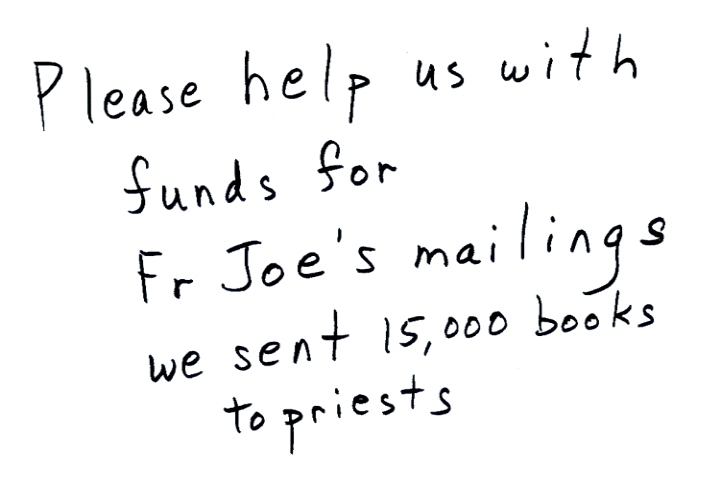 Please help us with
funds for
Fr Joe's mailings
we sent 15,000 books
to priests